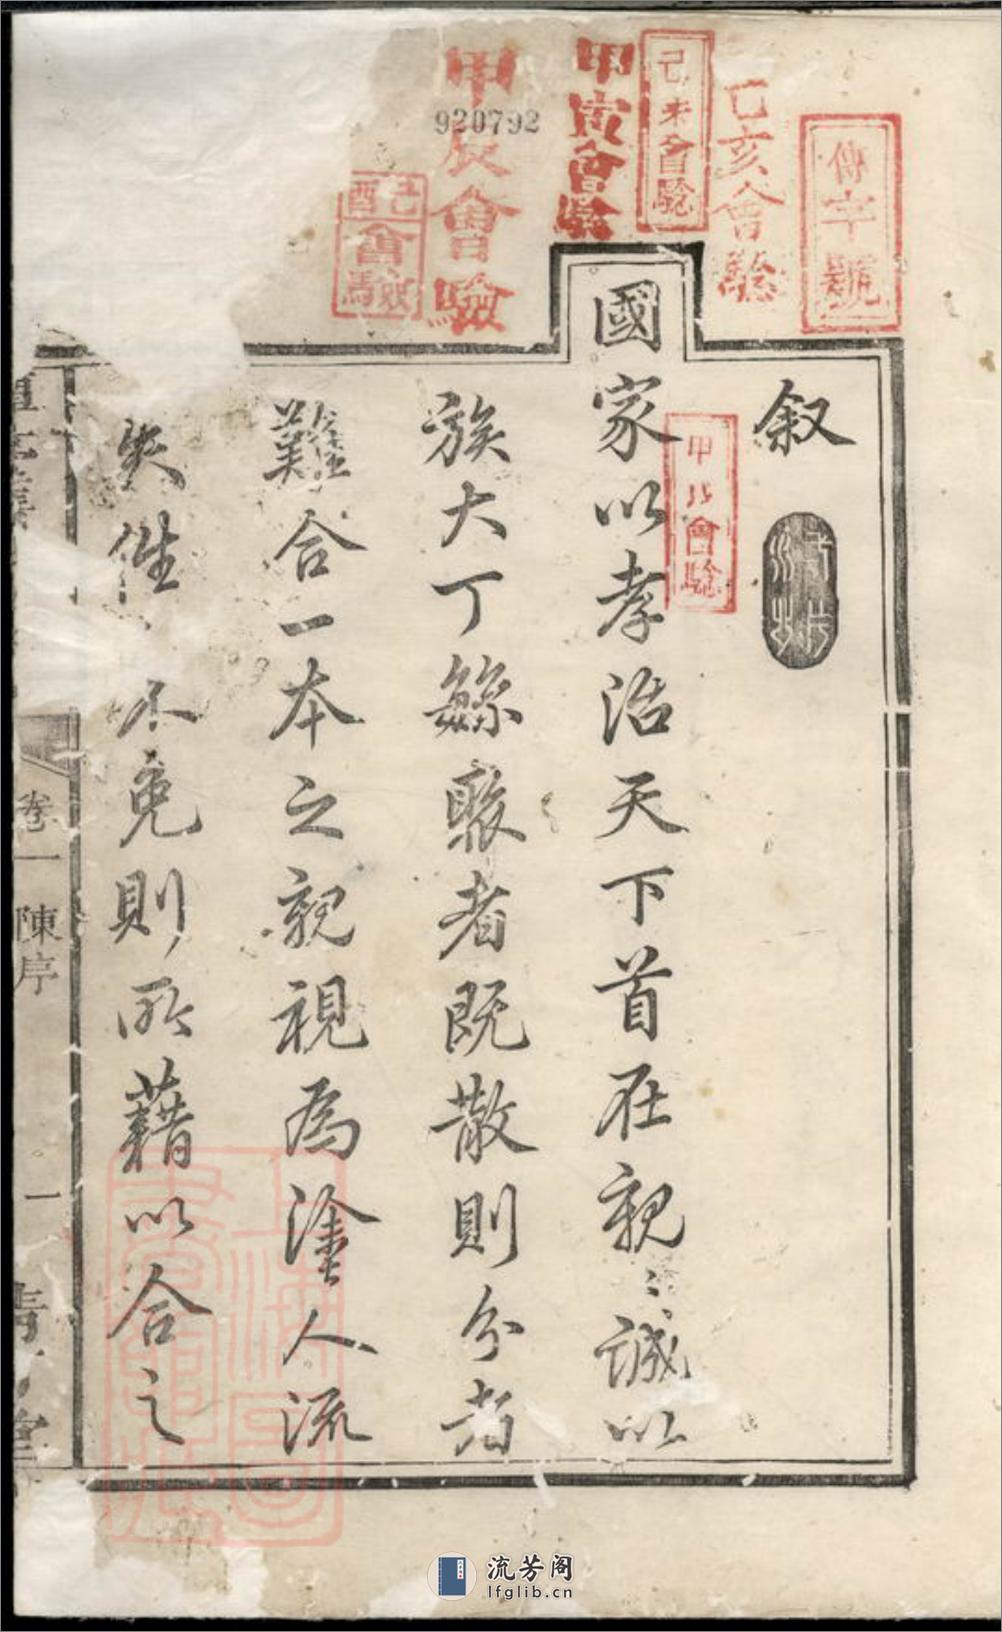 叙
國家以孝治天下首在親〻誠以
族大丁繇聚者既散則分者
難合一本之親視為塗人流
失性不免則所藉以合之
傳字號
乙亥會驗
己未會驗
甲寅會驗
甲辰會驗
920792
己酉會驗
甲 會驗
卷一 陳序
一
流芳阁
lfglib.cn